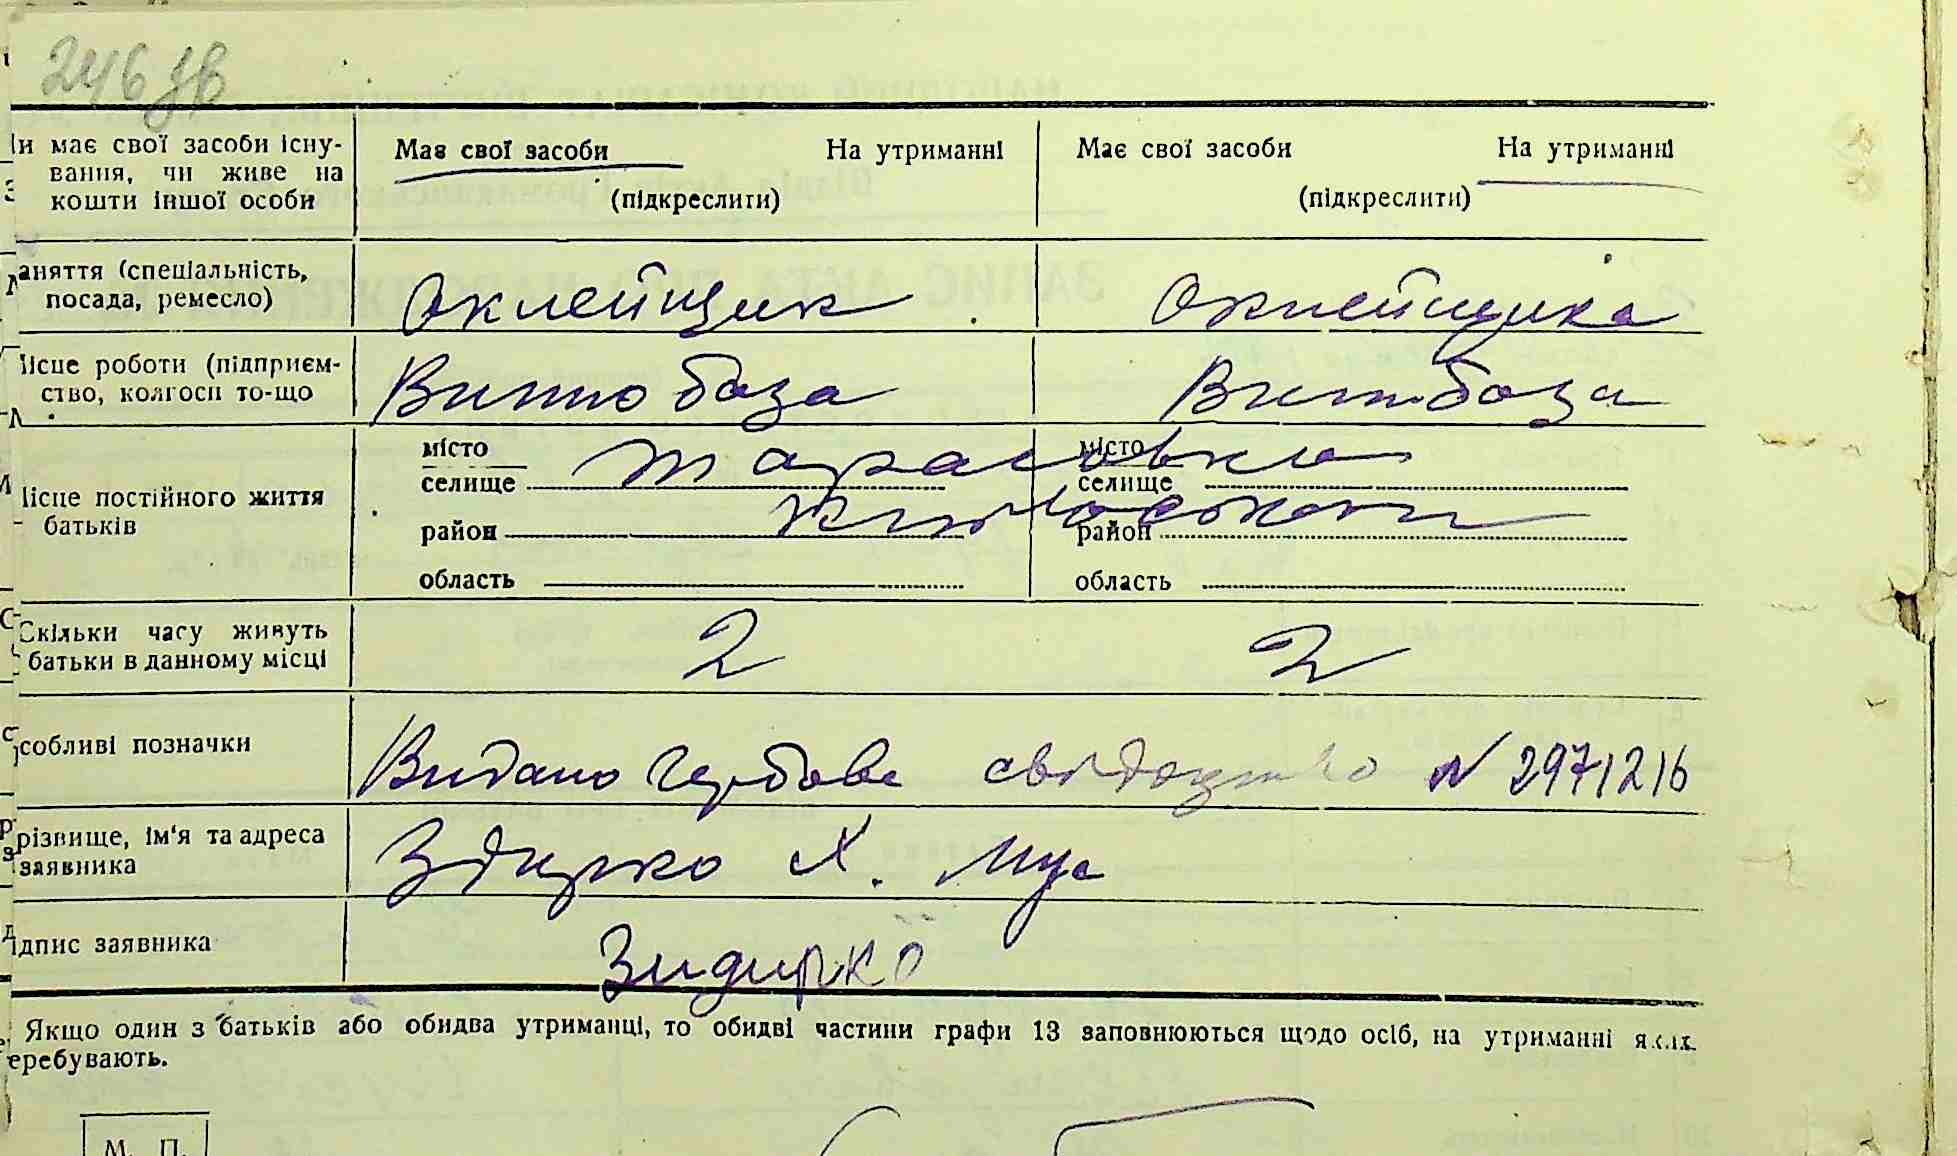 246 зв
и має свої засоби існу- Має свої засоби На утриманні Має свої засоби На утриманні
вання, чи живе на
кошти іншої особи (підкреслити) (підкреслити)
аняття (спеціальність, Оклейщик Оклейщика
посада, ремесло)
ісце роботи (підприєм- Винно база Винбаза
ство, колгосп то-що
місто місто
селище Тарасовка селище
ісце постійного життя
батьків
район район
область область
Скільки часу живуть 2 2
батьки в данному місці
собливі позначки Видано Гербове свідоцтво N 2971216
різвище, ім'я та адреса Здирко Х.
заявника
дпис заявника Зидирко
Якщо один з батьків або обидва утриманці, то обидві частини графи 13 заповнюються щодо осіб, на утриманні яких
еребувають.
М. П.